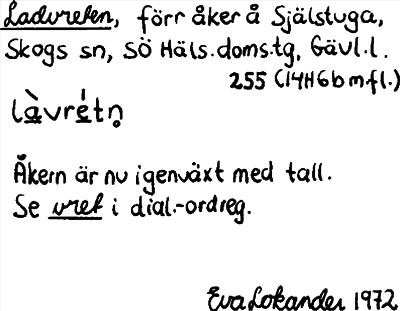 Ladvreten, förr åker å Själstuga,
Skogs sn, SÖ Häls.doms.tg, Gävl.l.
255 (14H6b m.fl.)
làvrétn̥
Åkern är nu igenväxt med tall.
Se vret i dial.-ordreg.
Eva Lokander 1972